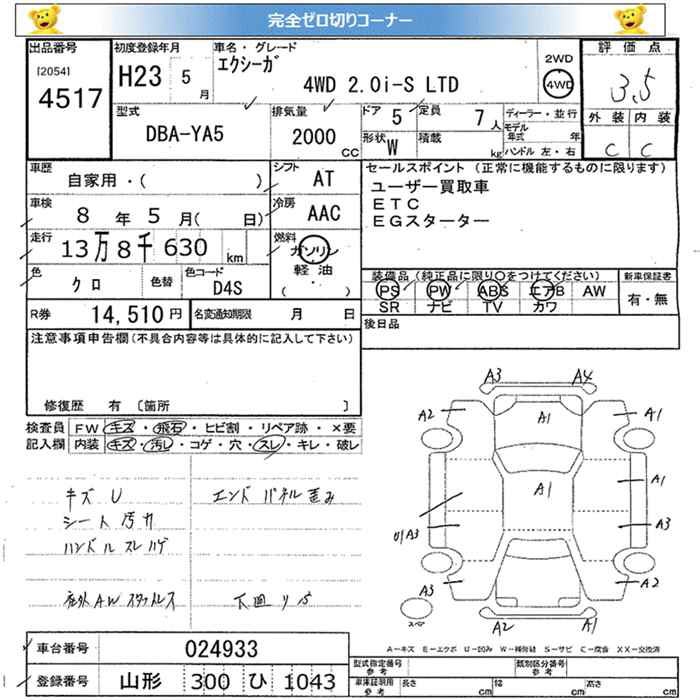 完全ゼロ切りコーナー
出品番号
[2054]
4517
初度登録年月
H23 5 月
車名・グレード
エクシーガ
4WD 2.0i-S LTD
2WD
4WD
評価点
3.5
外装 内装
C C
型式
DBA-YA5
排気量
2000 CC
ドア 5
定員 7 人
形状 W
積載 kg
ディーラー・並行
モデル年式 年
ハンドル 左・右
車歴
自家用・( )
シフト AT
車検
8 年 5 月( 日)
冷房 AAC
走行
13万8千630 km
燃料
ガソリン
軽油
( )
色
クロ
色替
色コード
D4S
R券 14,510 円
名変通知期限 月 日
セールスポイント(正常に機能するものに限ります)
ユーザー買取車
ETC
EGスターター
装備品(純正品に限り○をつけてください)
PS PW ABS エアB AW
SR ナビ TV カワ
新車保証書
有・無
後日品
注意事項申告欄(不具合内容等は具体的に記入して下さい)
修復歴 有 〔箇所 〕
検査員記入欄
FW キズ・飛石・ヒビ割・リペア跡・×要
内装 キズ・汚レ・コゲ・穴・スレ・キレ・破レ
キズ U
シート汚れ
ハンドルスレハゲ
社外AWスタッドレス
エンドパネル歪み
下回りサビ
A3 A4
A2 A1 A1
A1 A1
U1A3 A3
A3 A2
スペア
A2 A1
A-キズ E-エクボ U-凹み W-補修跡 S-サビ C-腐食 XX-交換済
車台番号 024933
登録番号 山形 300 ひ 1043
型式指定番号
参考
類別区分番号
参考
車体証明用
参考
長さ cm
幅 cm
高さ cm